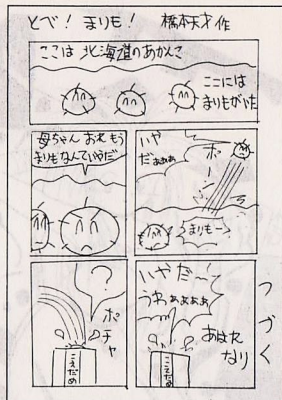 とべ! まりも! 橋本天才作
ここは 北海道のあかんこ
ここには
まりもがいた
母ちゃん おれ もう
まりもなんていやだ
いや
だぁぁぁ
ポーン
まりもー
?
ポチャ
こえだめ
いやだ〜
うわぁぁぁぁ
あはれ
なり
こえだめ
つづく